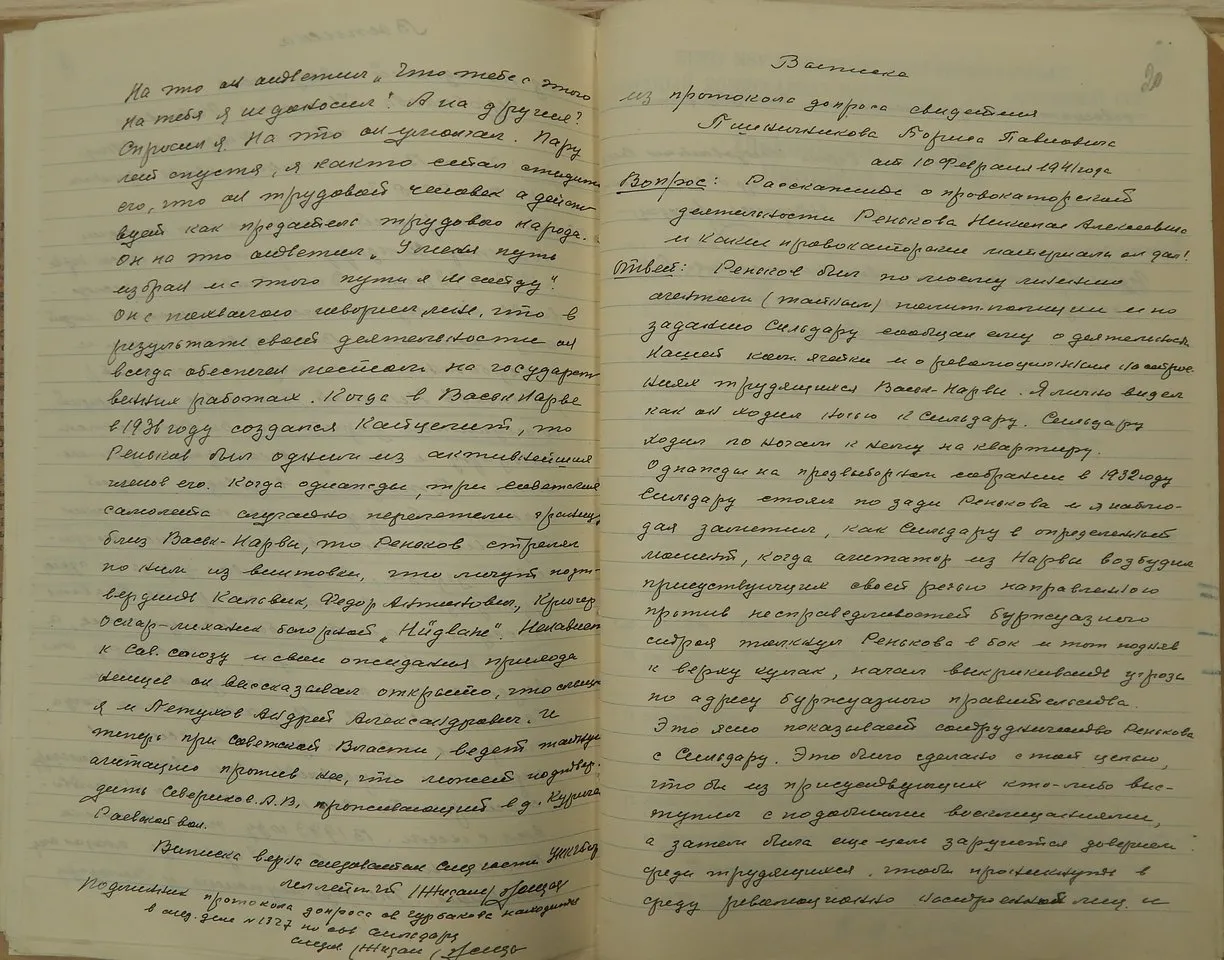 На это он ответил „Что тебе с этого
на тебя я не доносил". А на других?
Спросил я. На это он умолчал. Пару
лет спустя, я както сетал стыдить
его, что он трудовой человек а действу-
вует как предатель трудового народа.
Он на это ответил „У меня путь
избран и с этого пути я не сойду".
Он с похвалою говорил мне, что в
результате своей деятельности он
всегда обеспечен местом на государст
венних работах. Когда в Васьк-Нарве
в 1936 году создался Кайцелит, то
Реньков был одним из активнейших
членов его. Когда однажды, три советских
самолета случайно перелетели границу
близ Васьк-Нарвы, то Реньков стрелял
по ним из винтовки, что могут подт-
вердить Калавик, Федор Антонович, Кригер
Оскар-механик моторной
к Сов. союзу и свои ожидания прихода
немцев он высказывал открыто, что слышал
я и Петухов Андрей Александрович. И
теперь при Советской Власти, ведет тайную
агитацию против нее, что может подтвер-
дить Севериков. А.В. проживающий в д. Куричек
Раевской вол.
Выписка верна следователь след части УНКГБ
лейт-т ГБ (Жидам)
Подлинник протокола допроса св Гурбакова находится
в след. деле № 1727 по обв Сильдару
следов (Жидам)
20
Выписка
из протокола допроса свидетеля
Пшеничникова Бориса Павловича
от 10 Февраля 1941 года
Вопрос: Расскажите о провокаторской
деятельности Ренькова Николая Алексеевича
и какие провокаторские материалы он дал?
Ответ: Реньков был по моему мнению
агентом (тайным) полит. полиции и по
заданию Сильдару сообщал ему о деятельности
нашей ком. ячейки и о революционных настрое-
ниях трудящихся Васьк-Нарвы. Я лично видел
как он ходил ночью к Сильдару. Сильдару
ходил по ночам к нему на квартиру.
Однажды на предвыборном собрании в 1932 году
Сильдару стоял по зади Ренькова и я наблю-
дая заметил, как Сильдару в определенный
момент, когда агитатор из Нарвы возбудил
присутствующих своей речью направленного
против несправедливостей буржуазного
строя толкнул Ренькова в бок и тот подняв
к верху кулак, начал выкрикивать угрозы
по адресу буржуазного правительства.
Это ясно показывает сотрудничество Ренькова
с Сильдару. Это было сделано с той целью,
что бы из присутствующих кто-либо выс-
тупил с подобными восклицаниями,
а затем была еще цель заручится доверием
среди трудящихся, чтобы проникнуть в
среду революционно настроенной лиц и